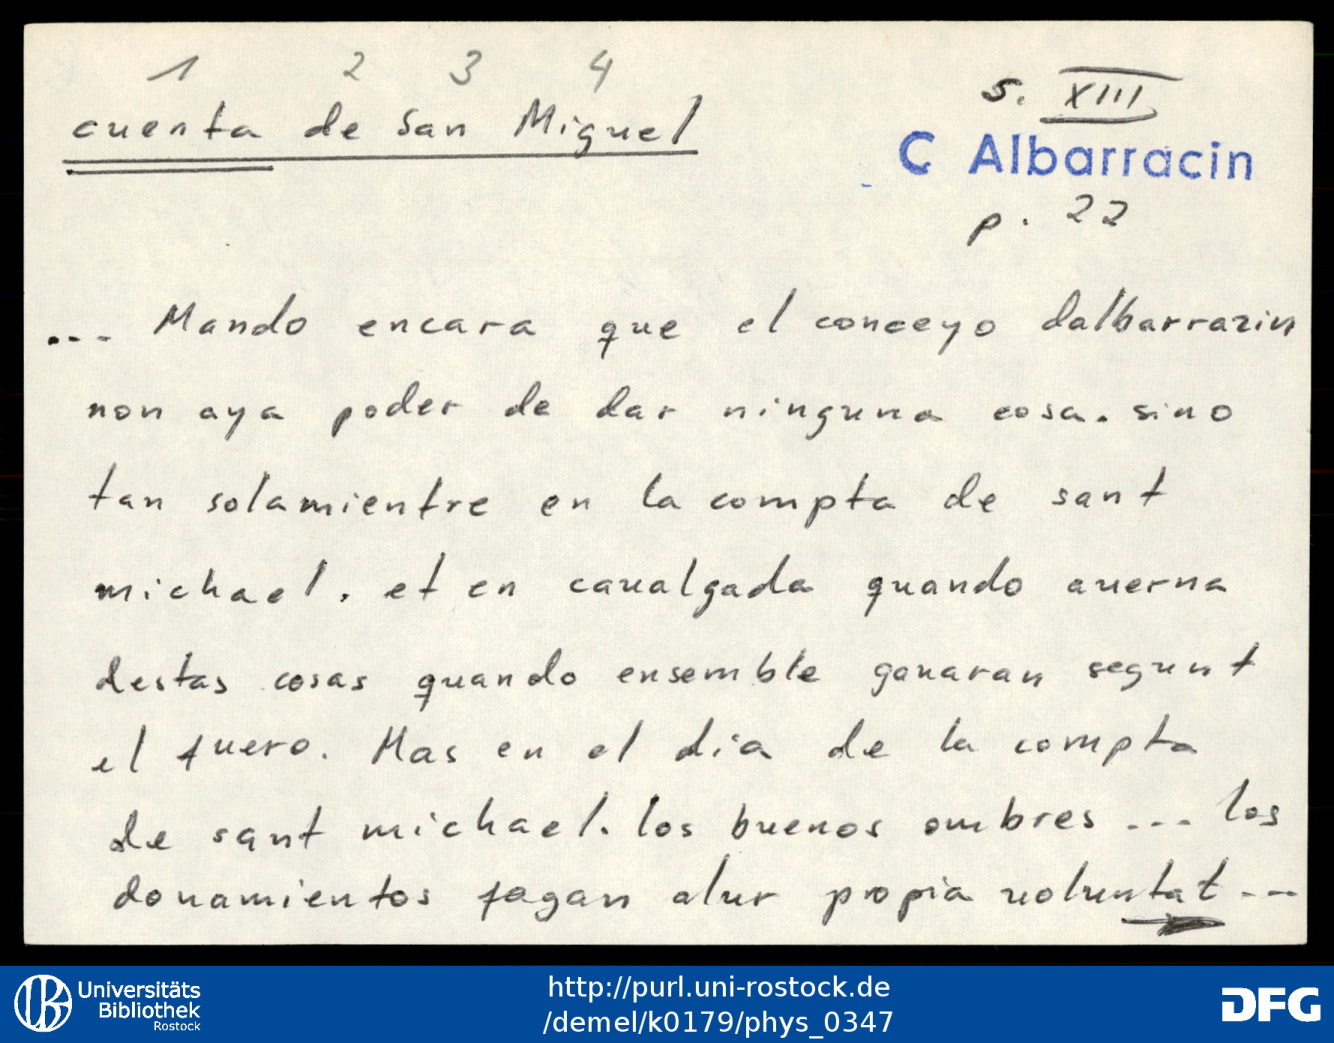 1 2 3 4
cuenta de San Miguel
s. XIII
C Albarracin
p. 22
... Mando encara que el conceyo dalbarrazin
non aya poder de dar ninguna cosa. sino
tan solamientre en la compta de sant
michael. et en caualgada quando auerna
destas cosas quando ensemble ganaran segunt
el fuero. Mas en el dia de la compta
de sant michael. los buenos ombres ... los
donamientos fagan alur propia voluntat ...
Universitäts
Bibliothek
Rostock
http://purl.uni-rostock.de
/demel/k0179/phys_0347
DFG